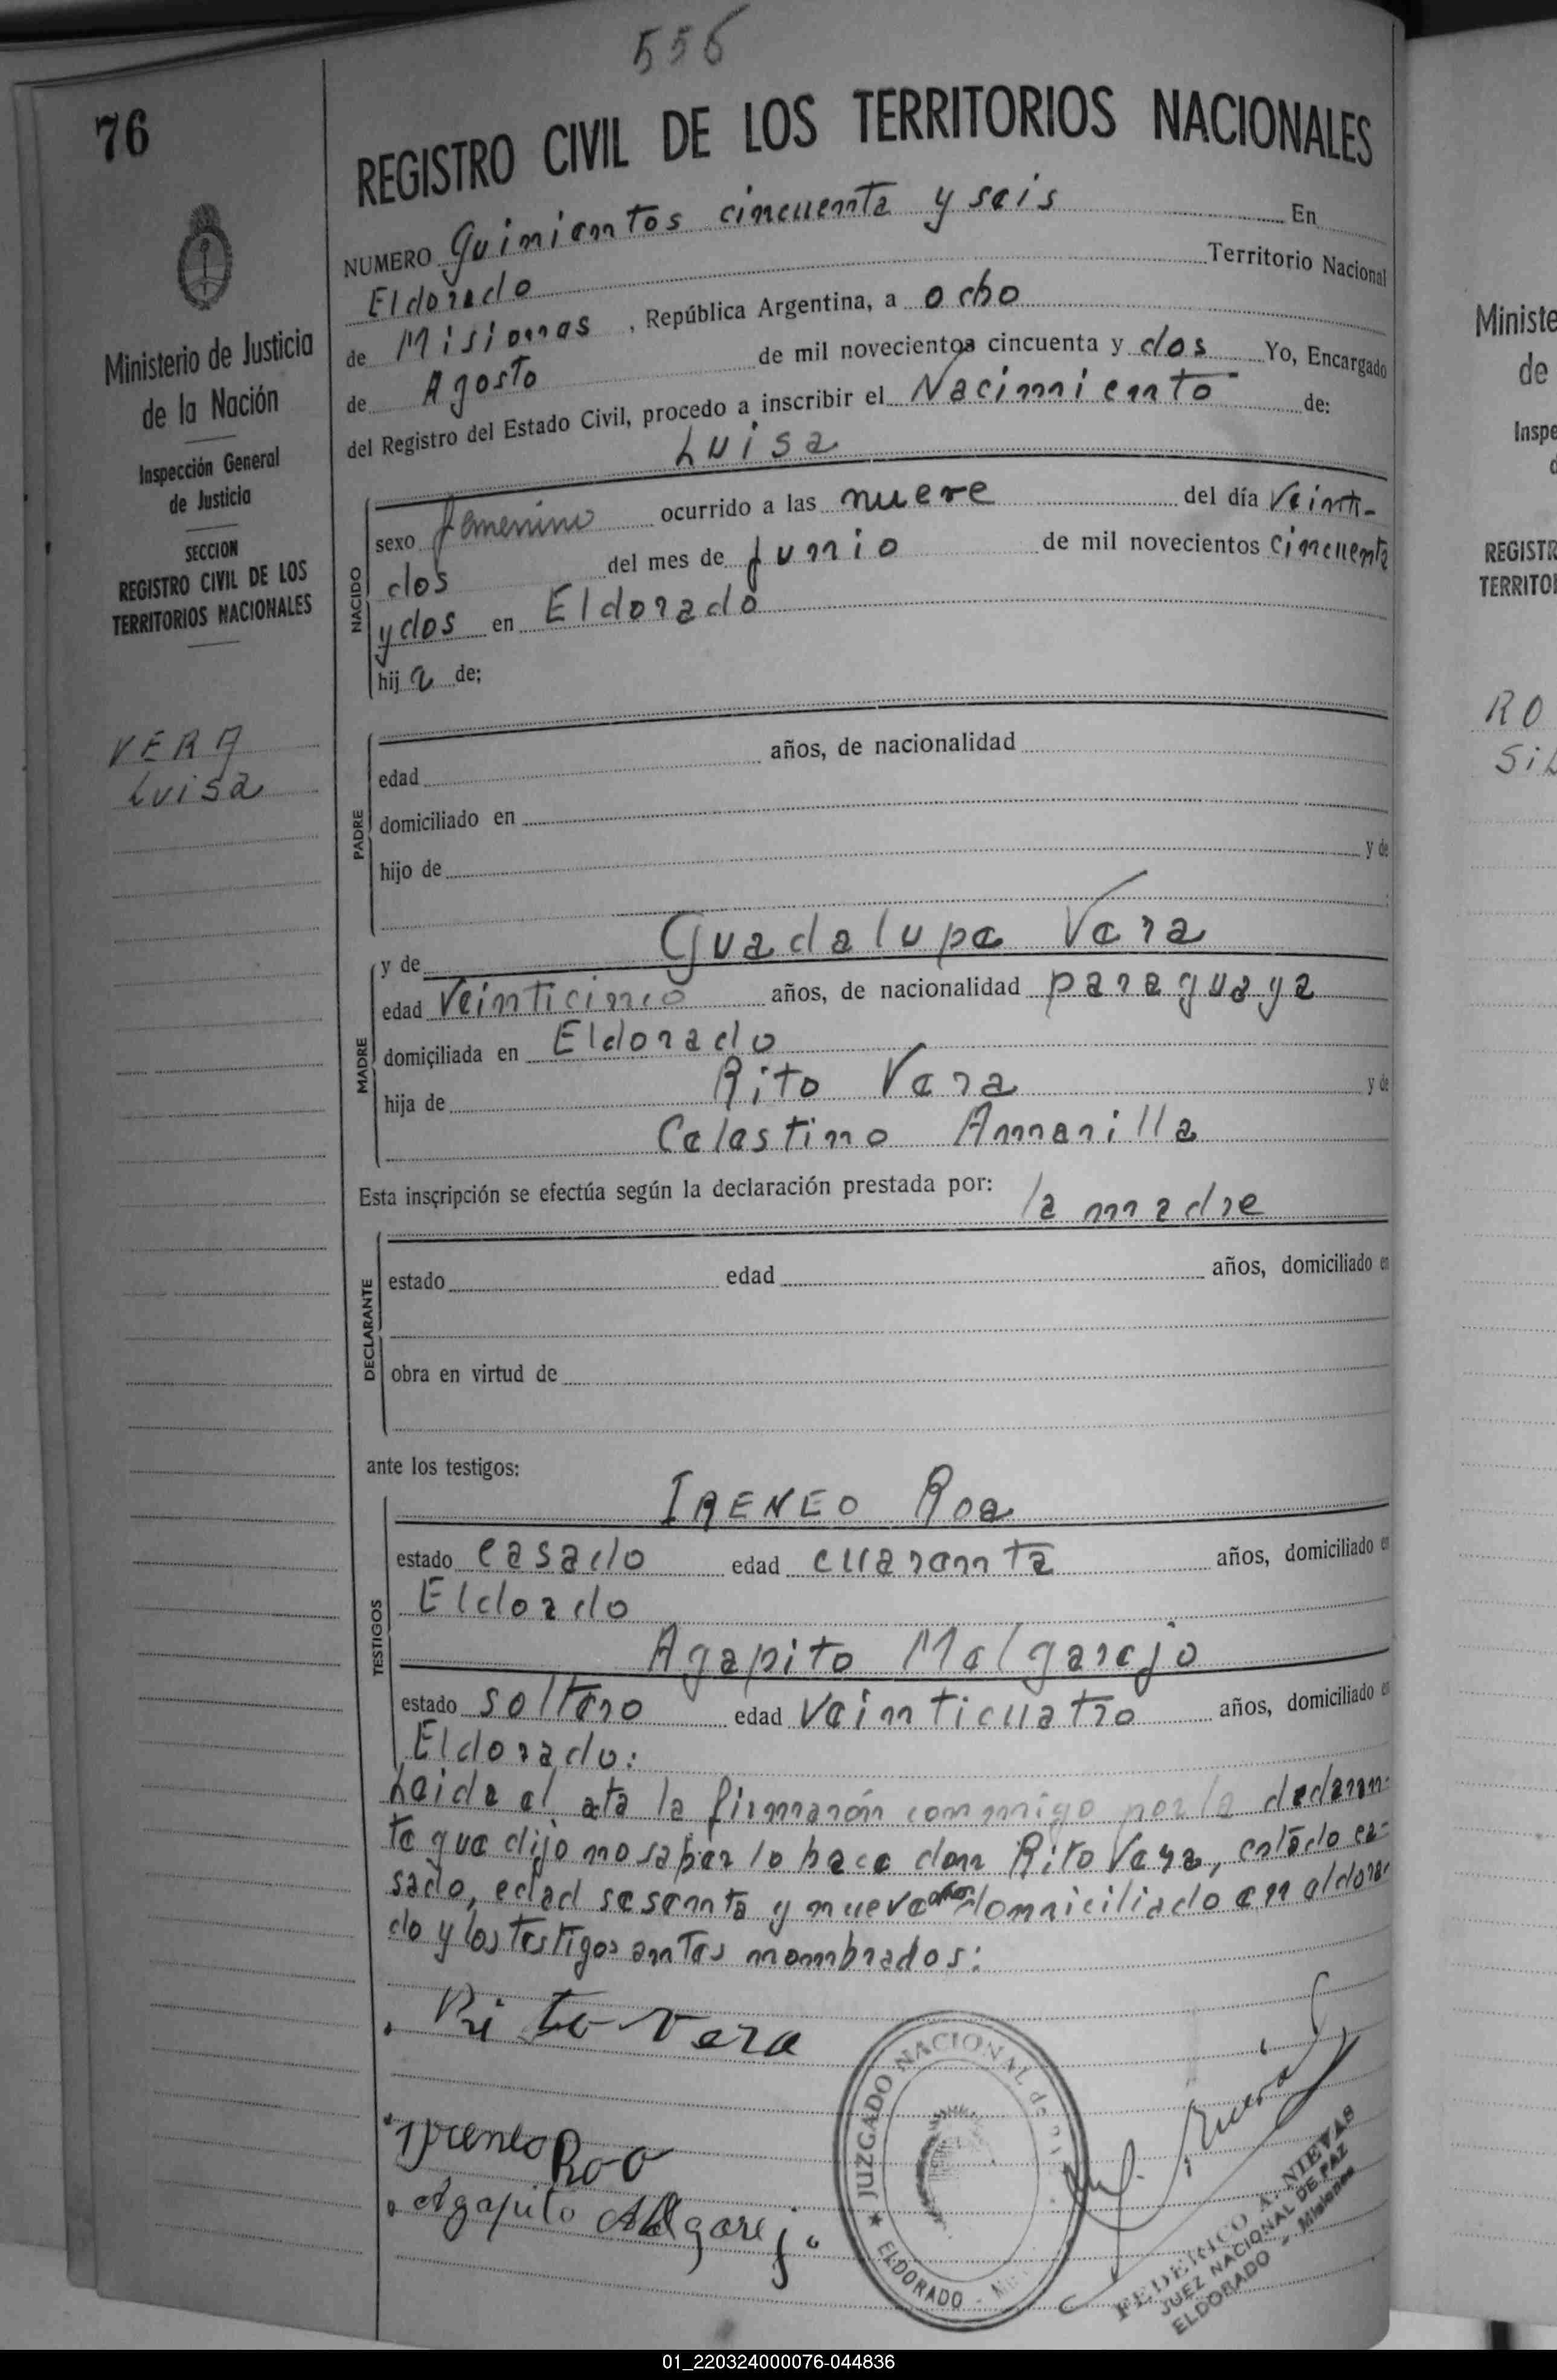 556
76
REGISTRO CIVIL DE LOS TERRITORIOS NACIONALES
NUMERO Quinientos cincuenta y seis En
Eldorado Territorio Nacional
de Misiones, República Argentina, a ocho
de Agosto de mil novecientos cincuenta y dos Yo, Encargado
del Registro del Estado Civil, procedo a inscribir el Nacimiento de:
Luisa
Ministerio de Justicia
de la Nación
Inspección General
de Justicia
SECCION
REGISTRO CIVIL DE LOS
TERRITORIOS NACIONALES
VERA
Luisa
NACIDO
sexo femenino ocurrido a las nueve del día Veinti-
dos del mes de Junio de mil novecientos cincuenta
y dos en Eldorado
hij a de;
PADRE
edad años, de nacionalidad
domiciliado en
hijo de y de
MADRE
y de Guadalupe Vera
edad Veinticinco años, de nacionalidad paraguaya
domiciliada en Eldorado
hija de Rito Vera y de
Celestino Amarilla
Esta inscripción se efectúa según la declaración prestada por:
la madre
DECLARANTE
estado edad años, domiciliado en
obra en virtud de
ante los testigos:
TESTIGOS
IRENEO Roa
estado casado edad cuarenta años, domiciliado e
Eldorado
Agapito Melgarejo
estado soltero edad Veinticuatro años, domiciliado e
Eldorado:
Leida el ata la firmarón conmigo por la declaran-
te que dijo no saber lo hace don Rito Vera, estado ca-
sado, edad sesenta y nueve años domiciliado en eldora-
do y los testigos antes nombrados:
Rito Vera
Ireneo Roa
Agapito Melgarejo
JUZGADO NACIONAL de
ELDORADO
FEDERICO A. NIEVAS
JUEZ NACIONAL DE PAZ
ELDORADO - Misiones
Ministe
de
Inspe
d
REGISTR
TERRITOR
RO
Sil
01_220324000076-044836